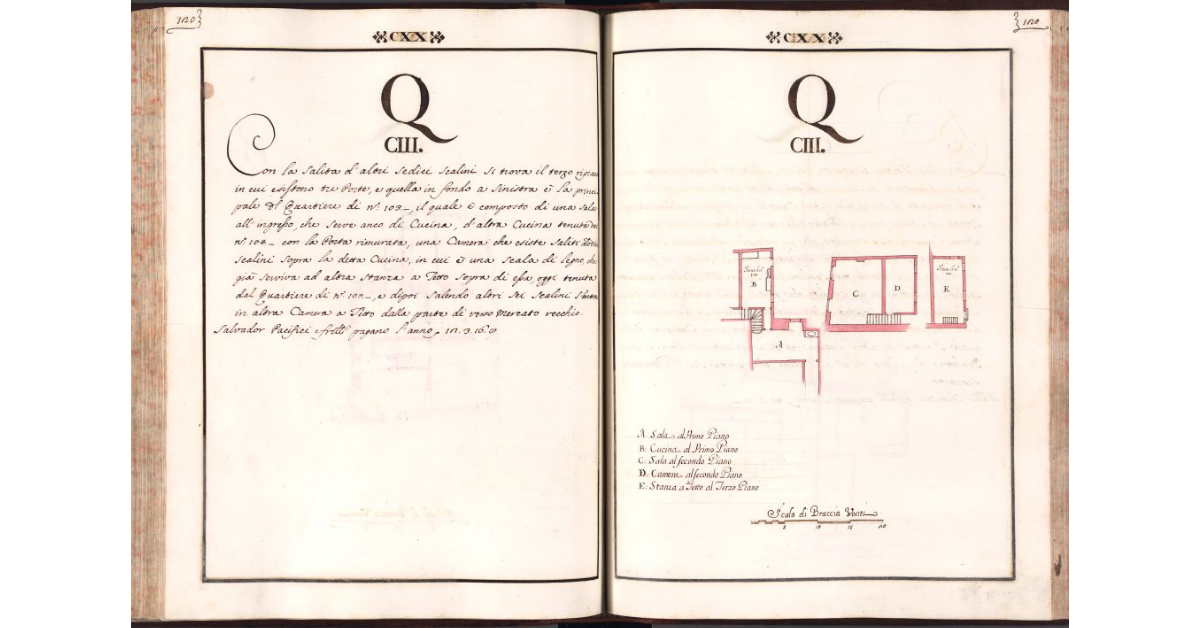 120
CXX
Q
CIII.
Con la Salita d'altri Sedici Scalini Si trova il terzo
in cui esistono tre Porte, e quella in fondo a Sinistra è la princi
pale Dl Quartiere di nº. 103_, il quale è composto di una Sala
all'ingresso, che Serve anco di Cucina, d'altra Cucina tenuta
nº. 104_ con la Porta rimurata, una Camera che esiste Saliti
Scalini Sopra la detta Cucina, in cui è una Scala di legno, che
già Serviva ad altra Stanza a Tetto Sopra di essa, oggi tenuta
dal Quartiere di nº. 102_, e dipoi Salendo altri Sei Scalini
in altra Camera a Tetto dalla parte di verso Mercato vecchio
Salvador Pacifici e fratelli pagano l'anno
120
CXX
Q
CIII.
B
C
D
E
A
A. Sala al Primo Piano
B. Cucina al Primo Piano
C. Sala al secondo Piano
D. Camera al secondo Piano
E. Stanza a Tetto al Terzo Piano
Scala di Braccia Venti
5 10 15 20